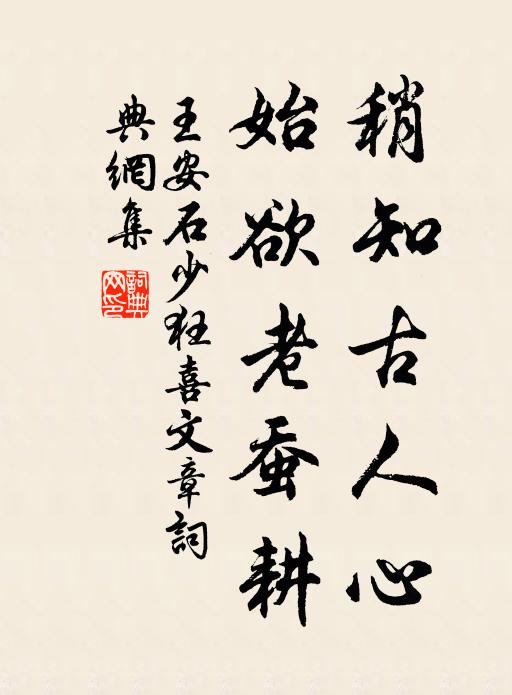 稍知古人心
始欲老蚕耕
王安石少狂喜文章詞
典網集
詞典
网印